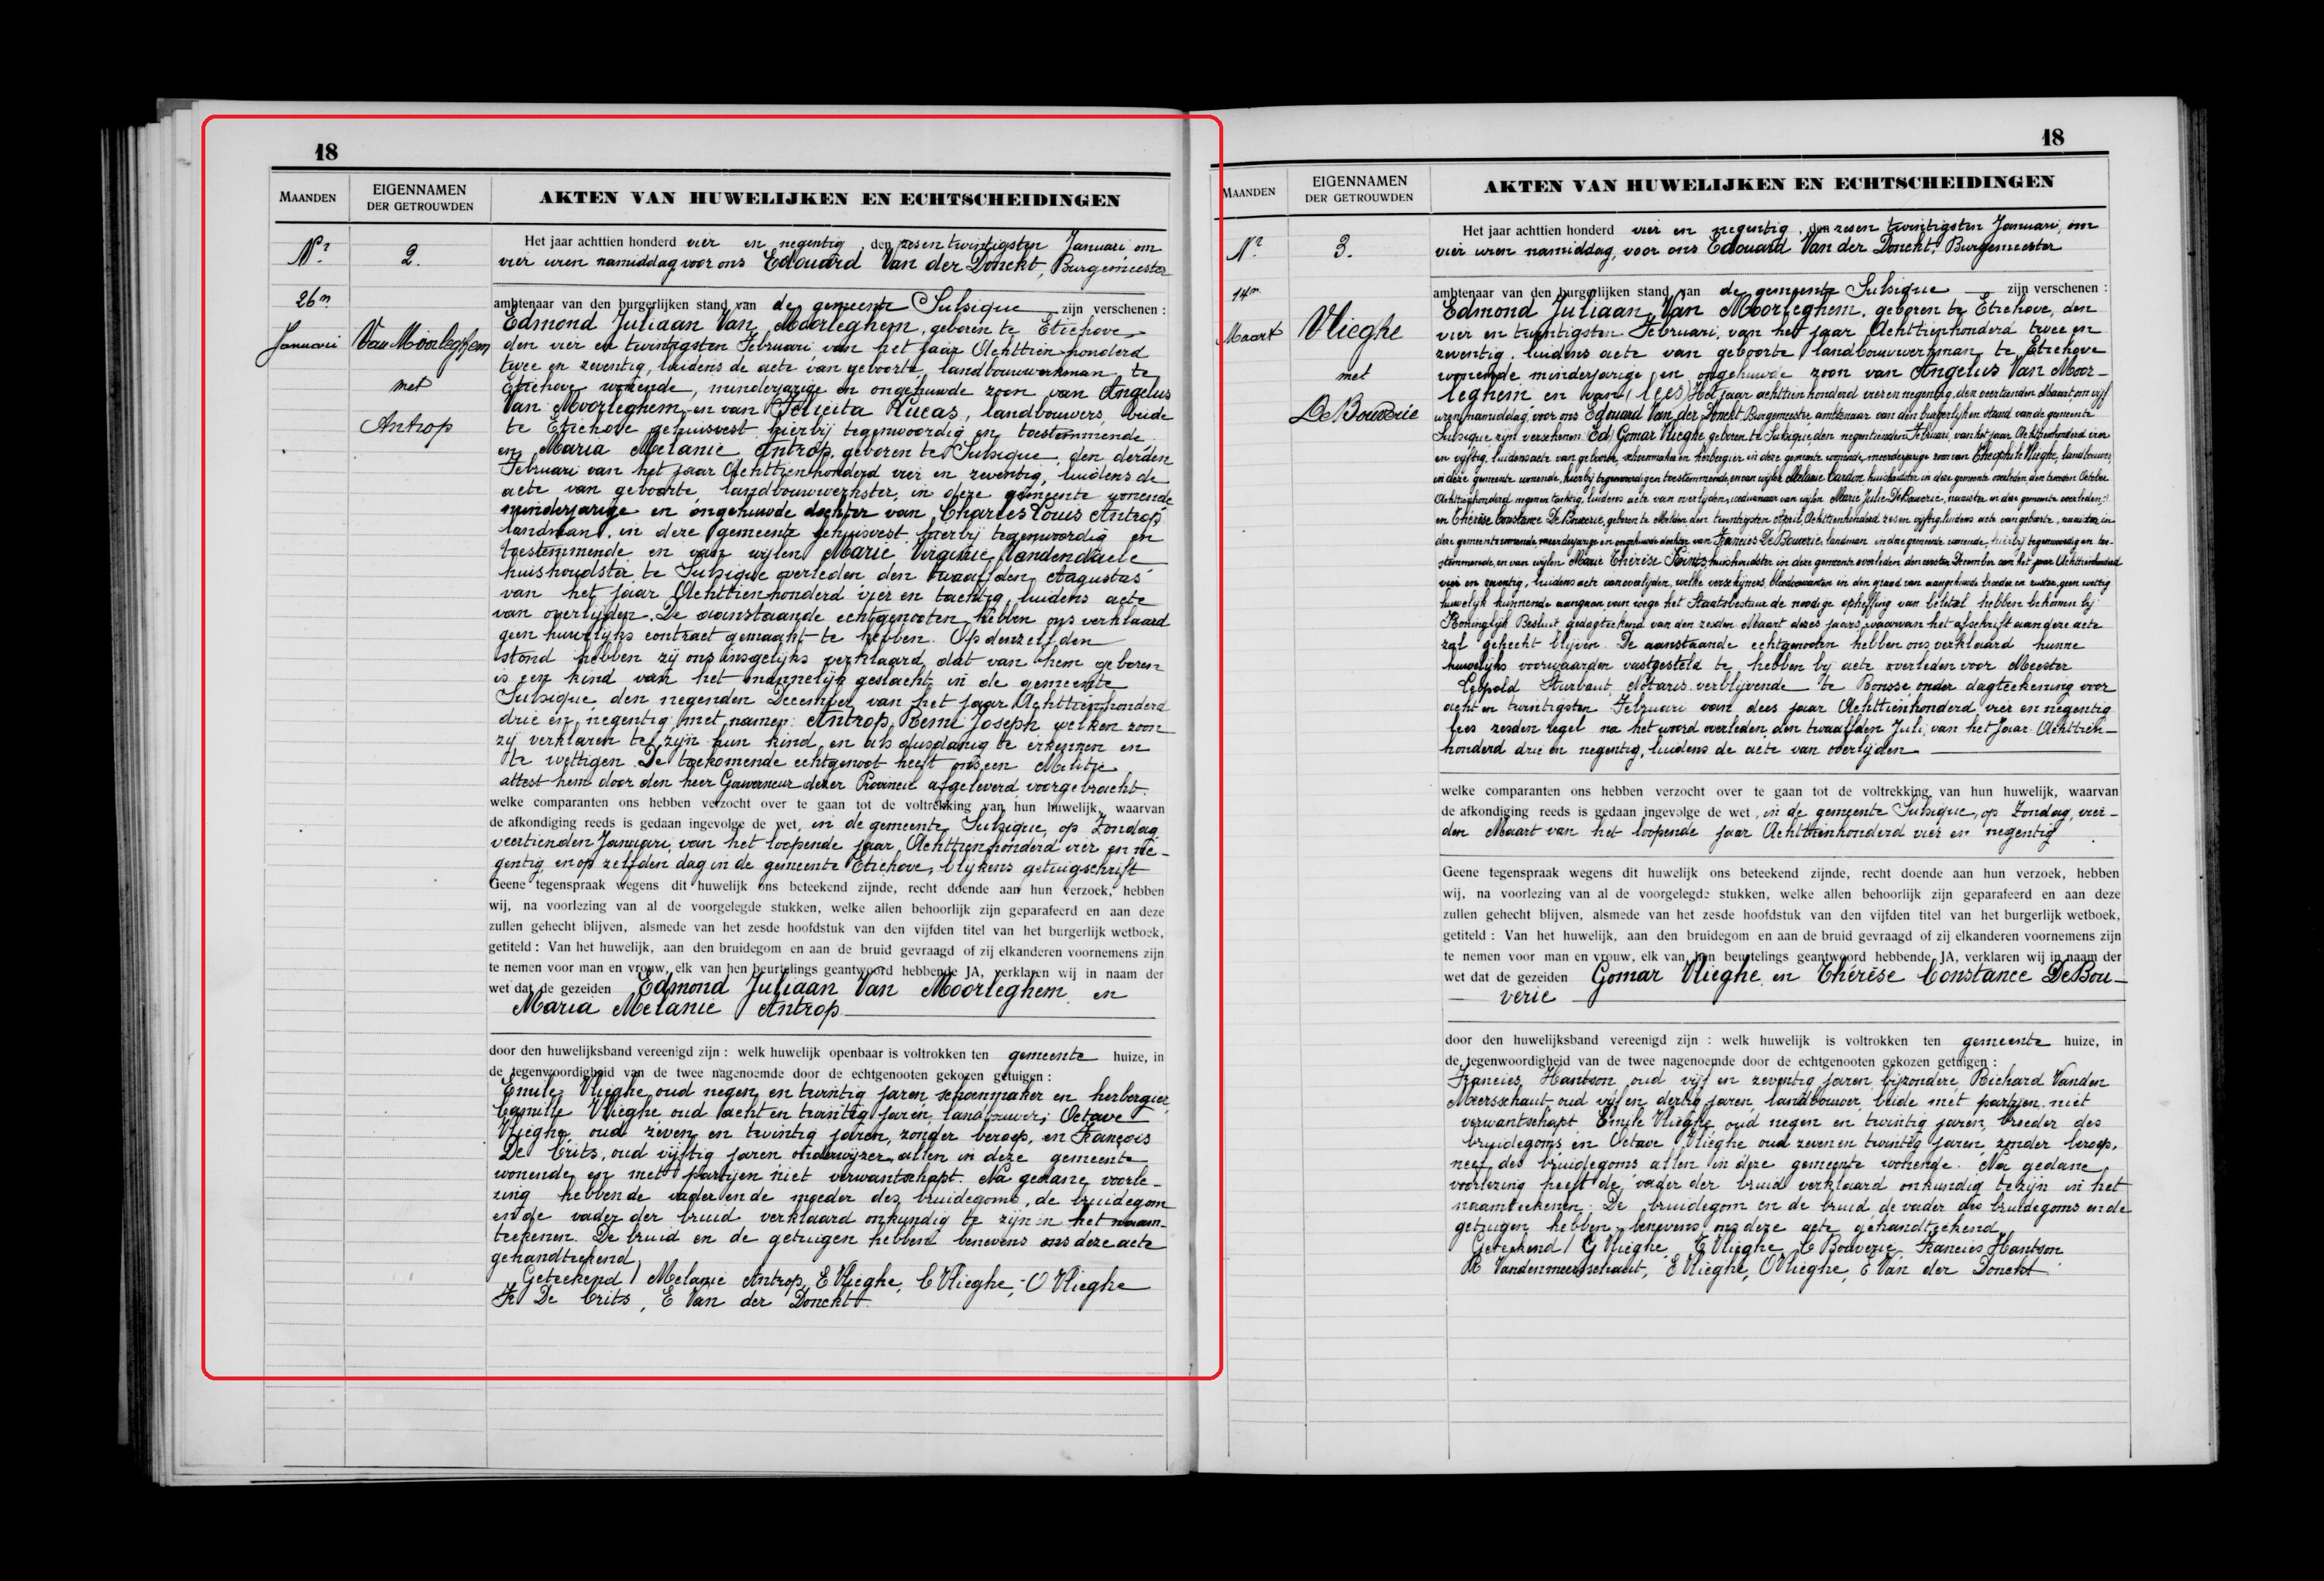 18
MAANDEN
EIGENNAMEN
DER GETROUWDEN
AKTEN VAN HUWELIJKEN EN ECHTSCHEIDINGEN
Nr 2.
26n
Januari
Van Moorleghem
met
Antrop
Het jaar achttien honderd vier en negentig, den zes en twintigsten Januari, om
vier uren namiddag, voor ons Edouard Van der Donckt, Burgemeester
ambtenaar van den burgerlijken stand van de gemeente Sulsique zijn verschenen :
Edmond Juliaan Van Moorleghem, geboren te Etichove,
den vier en twintigsten Februari van het jaar Achttienhonderd
twee en zeventig, luidens de acte van geboorte, landbouwwerkman, te
Etichove wonende, minderjarige en ongehuwde zoon van Angelus
Van Moorleghem en van Felicita Lucas, landbouwers, beide
te Etichove gehuisvest hierbij tegenwoordig en toestemmende
en Maria Melanie Antrop, geboren te Sulsique, den derden
Februari van het jaar Achttienhonderd vier en zeventig, luidens de
acte van geboorte, landbouwwerkster, in deze gemeente wonende
minderjarige en ongehuwde dochter van Charles Louis Antrop
landman, in deze gemeente gehuisvest, hierbij tegenwoordig en
toestemmende en van wijlen Marie Virginie Vandendaele
huishoudster te Sulsique overleden den twaalfden Augustus
van het jaar Achttienhonderd vier en tachtig, luidens acte
van overlijden. De aanstaande echtgenooten hebben ons verklaard
geen huwelijks contract gemaakt te hebben. Op denzelfden
stond hebben zij ons insgelijks verklaard dat van hem geboren
is een kind van het mannelijk geslacht in de gemeente
Sulsique, den negenden December van het jaar Achttienhonderd
drie en negentig met namen Antrop Remi Joseph welken zoon
zij verklaren te zijn hun kind en als dusdanig te erkennen en
te wettigen. De toekomende echtgenoot heeft ons een Militie
attest hem door den heer Gouverneur dezer Provincie afgeleverd, voorgebracht.
welke comparanten ons hebben verzocht over te gaan tot de voltrekking van hun huwelijk, waarvan
de afkondiging reeds is gedaan ingevolge de wet, in de gemeente Sulsique, op Zondag
veertienden Januari, van het loopende jaar Achttienhonderd vier en ne-
gentig, en op zelfden dag in de gemeente Etichove, blijkens getuigschrift
Geene tegenspraak wegens dit huwelijk ons beteekend zijnde, recht doende aan hun verzoek, hebben
wij, na voorlezing van al de voorgelegde stukken, welke allen behoorlijk zijn geparafeerd en aan deze
zullen gehecht blijven, alsmede van het zesde hoofdstuk van den vijfden titel van het burgerlijk wetboek,
getiteld : Van het huwelijk, aan den bruidegom en aan de bruid gevraagd of zij elkanderen voornemens zijn
te nemen voor man en vrouw, elk van hen beurtelings geantwoord hebbende JA, verklaren wij in naam der
wet dat de gezeiden Edmond Juliaan Van Moorleghem en
Maria Melanie Antrop
door den huwelijksband vereenigd zijn : welk huwelijk openbaar is voltrokken ten gemeente huize, in
de tegenwoordigheid van de twee nagenoemde door de echtgenooten gekozen getuigen :
Emile Vlieghe, oud negen en twintig jaren, schoenmaker en herbergier,
Camille Vlieghe, oud acht en twintig jaren, landbouwer, Octave
Vlieghe, oud zeven en twintig jaren, zonder beroep, en François
De Crits, oud vijftig jaren onderwijzer, allen in deze gemeente
wonende en met partijen niet verwantschapt. Na gedane voorle-
zing hebben de vader en de moeder des bruidegoms, de bruidegom
en de vader der bruid verklaard onkundig te zijn in het naam-
teekenen. De bruid en de getuigen hebben benevens ons deze acte
gehandteekend,
Geteekend / Melanie Antrop, E Vlieghe, C Vlieghe, O Vlieghe
Fr De Crits, E Van der Donckt
18
MAANDEN
EIGENNAMEN
DER GETROUWDEN
AKTEN VAN HUWELIJKEN EN ECHTSCHEIDINGEN
Nr 3.
14en
Maart
Vlieghe
met
De Bouverie
Het jaar achttien honderd vier en negentig, den zes en twintigsten Januari, om
vier uren namiddag, voor ons Edouard Van der Donckt, Burgemeester
ambtenaar van den burgerlijken stand van de gemeente Sulsique zijn verschenen :
Edmond Juliaan Van Moorleghem, geboren te Etichove, den
vier en twintigsten Februari, van het jaar Achttienhonderd twee en
zeventig, luidens acte van geboorte landbouwwerkman te Etichove
wonende minderjarige en ongehuwde zoon van Angelus Van Moor-
leghem en van (lees) Het jaar achttien honderd vier en negentig, den veertienden Maart, om vijf
uren namiddag, voor ons Edouard Van der Donckt Burgemeester, ambtenaar van den burgerlijken stand van de gemeente
Sulsique zijn verschenen (Ed) Gomar Vlieghe geboren te Sulsique den negentienden Februari van het jaar Achttienhonderd vier
en vijftig, luidens acte van geboorte, schoenmaker en herbergier in deze gemeente wonende, meerderjarige zoon van Theophile Vlieghe, landbouwer,
in deze gemeente wonende, hierbij tegenwoordig en toestemmende, en van wijlen Melanie Cardon huishoudster in deze gemeente overleden, den tweeden October
Achttienhonderd negen en tachtig, luidens acte van overlijden, weduwnaar van wijlen Marie Julie De Bouverie, naaister in deze gemeente overleden,
en Thérèse Constance De Bouverie, geboren te Melden den twintigsten April, Achttienhonderd zes en vijftig, luidens acte van geboorte, naaister, in
deze gemeente wonende, meerderjarige en ongehuwde dochter van Francies De Bouverie, landman in deze gemeente wonende, hierbij tegenwoordig en toe-
stemmende, en van wijlen Marie Thérèse huishoudster in deze gemeente overleden den eersten December van het jaar Achttienhonderd
vier en zeventig, luidens acte van overlijden, welke verschijners bloedverwanten in den graad van aangehuwde broeder en zuster, geen wettig
huwelijk kunnende aangaan van wege het Staatsbestuur de noodige opheffing van beletsel hebben bekomen bij
Koninglijk Besluit gedagteekend van den zesden Maart dezes jaars, waarvan het afschrift aan deze acte
zal gehecht blijven. De aanstaande echtgenooten hebben ons verklaard hunne
huwelijks voorwaarden vastgesteld te hebben bij acte overleden voor Meester
Leopold Sturbaut, Notaris verblijvende te Ronsse onder dagteekening voor
acht en twintigsten Februari van dees jaar Achttienhonderd vier en negentig
lees zesden regel na het woord overleden den twaalfden Juli, van het Jaar Achttien-
honderd drie en negentig, luidens de acte van overlijden
welke comparanten ons hebben verzocht over te gaan tot de voltrekking van hun huwelijk, waarvan
de afkondiging reeds is gedaan ingevolge de wet, in de gemeente Sulsique, op Zondag, vier-
den Maart van het loopende jaar Achttienhonderd vier en negentig
Geene tegenspraak wegens dit huwelijk ons beteekend zijnde, recht doende aan hun verzoek, hebben
wij, na voorlezing van al de voorgelegde stukken, welke allen behoorlijk zijn geparafeerd en aan deze
zullen gehecht blijven, alsmede van het zesde hoofdstuk van den vijfden titel van het burgerlijk wetboek,
getiteld : Van het huwelijk, aan den bruidegom en aan de bruid gevraagd of zij elkanderen voornemens zijn
te nemen voor man en vrouw, elk van hen beurtelings geantwoord hebbende JA, verklaren wij in naam der
wet dat de gezeiden Gomar Vlieghe en Thérèse Constance De Bou-
verie
door den huwelijksband vereenigd zijn : welk huwelijk is voltrokken ten gemeente huize, in
de tegenwoordigheid van de twee nagenoemde door de echtgenooten gekozen getuigen :
Francies Hantson, oud vijf en zeventig jaren, bijzondere, Richard Vanden
Meersschaut, oud vijf en dertig jaren landbouwer, beide met partijen niet
verwantschapt Emile Vlieghe oud negen en twintig jaren, broeder des
bruidegoms, en Octave Vlieghe oud zeven en twintig jaren, zonder beroep,
neef des bruidegoms allen in deze gemeente wonende. Na gedane
voorlezing heeft de vader der bruid verklaard onkundig te zijn in het
naamteekenen. De bruidegom en de bruid, de vader des bruidegoms en de
getuigen hebben benevens ons deze acte gehandteekend,
Geteekend / G Vlieghe, E Vlieghe, C Bouverie, Francies Hantson
R Vandenmeersschaut, E Vlieghe, O Vlieghe, E Van der Donckt